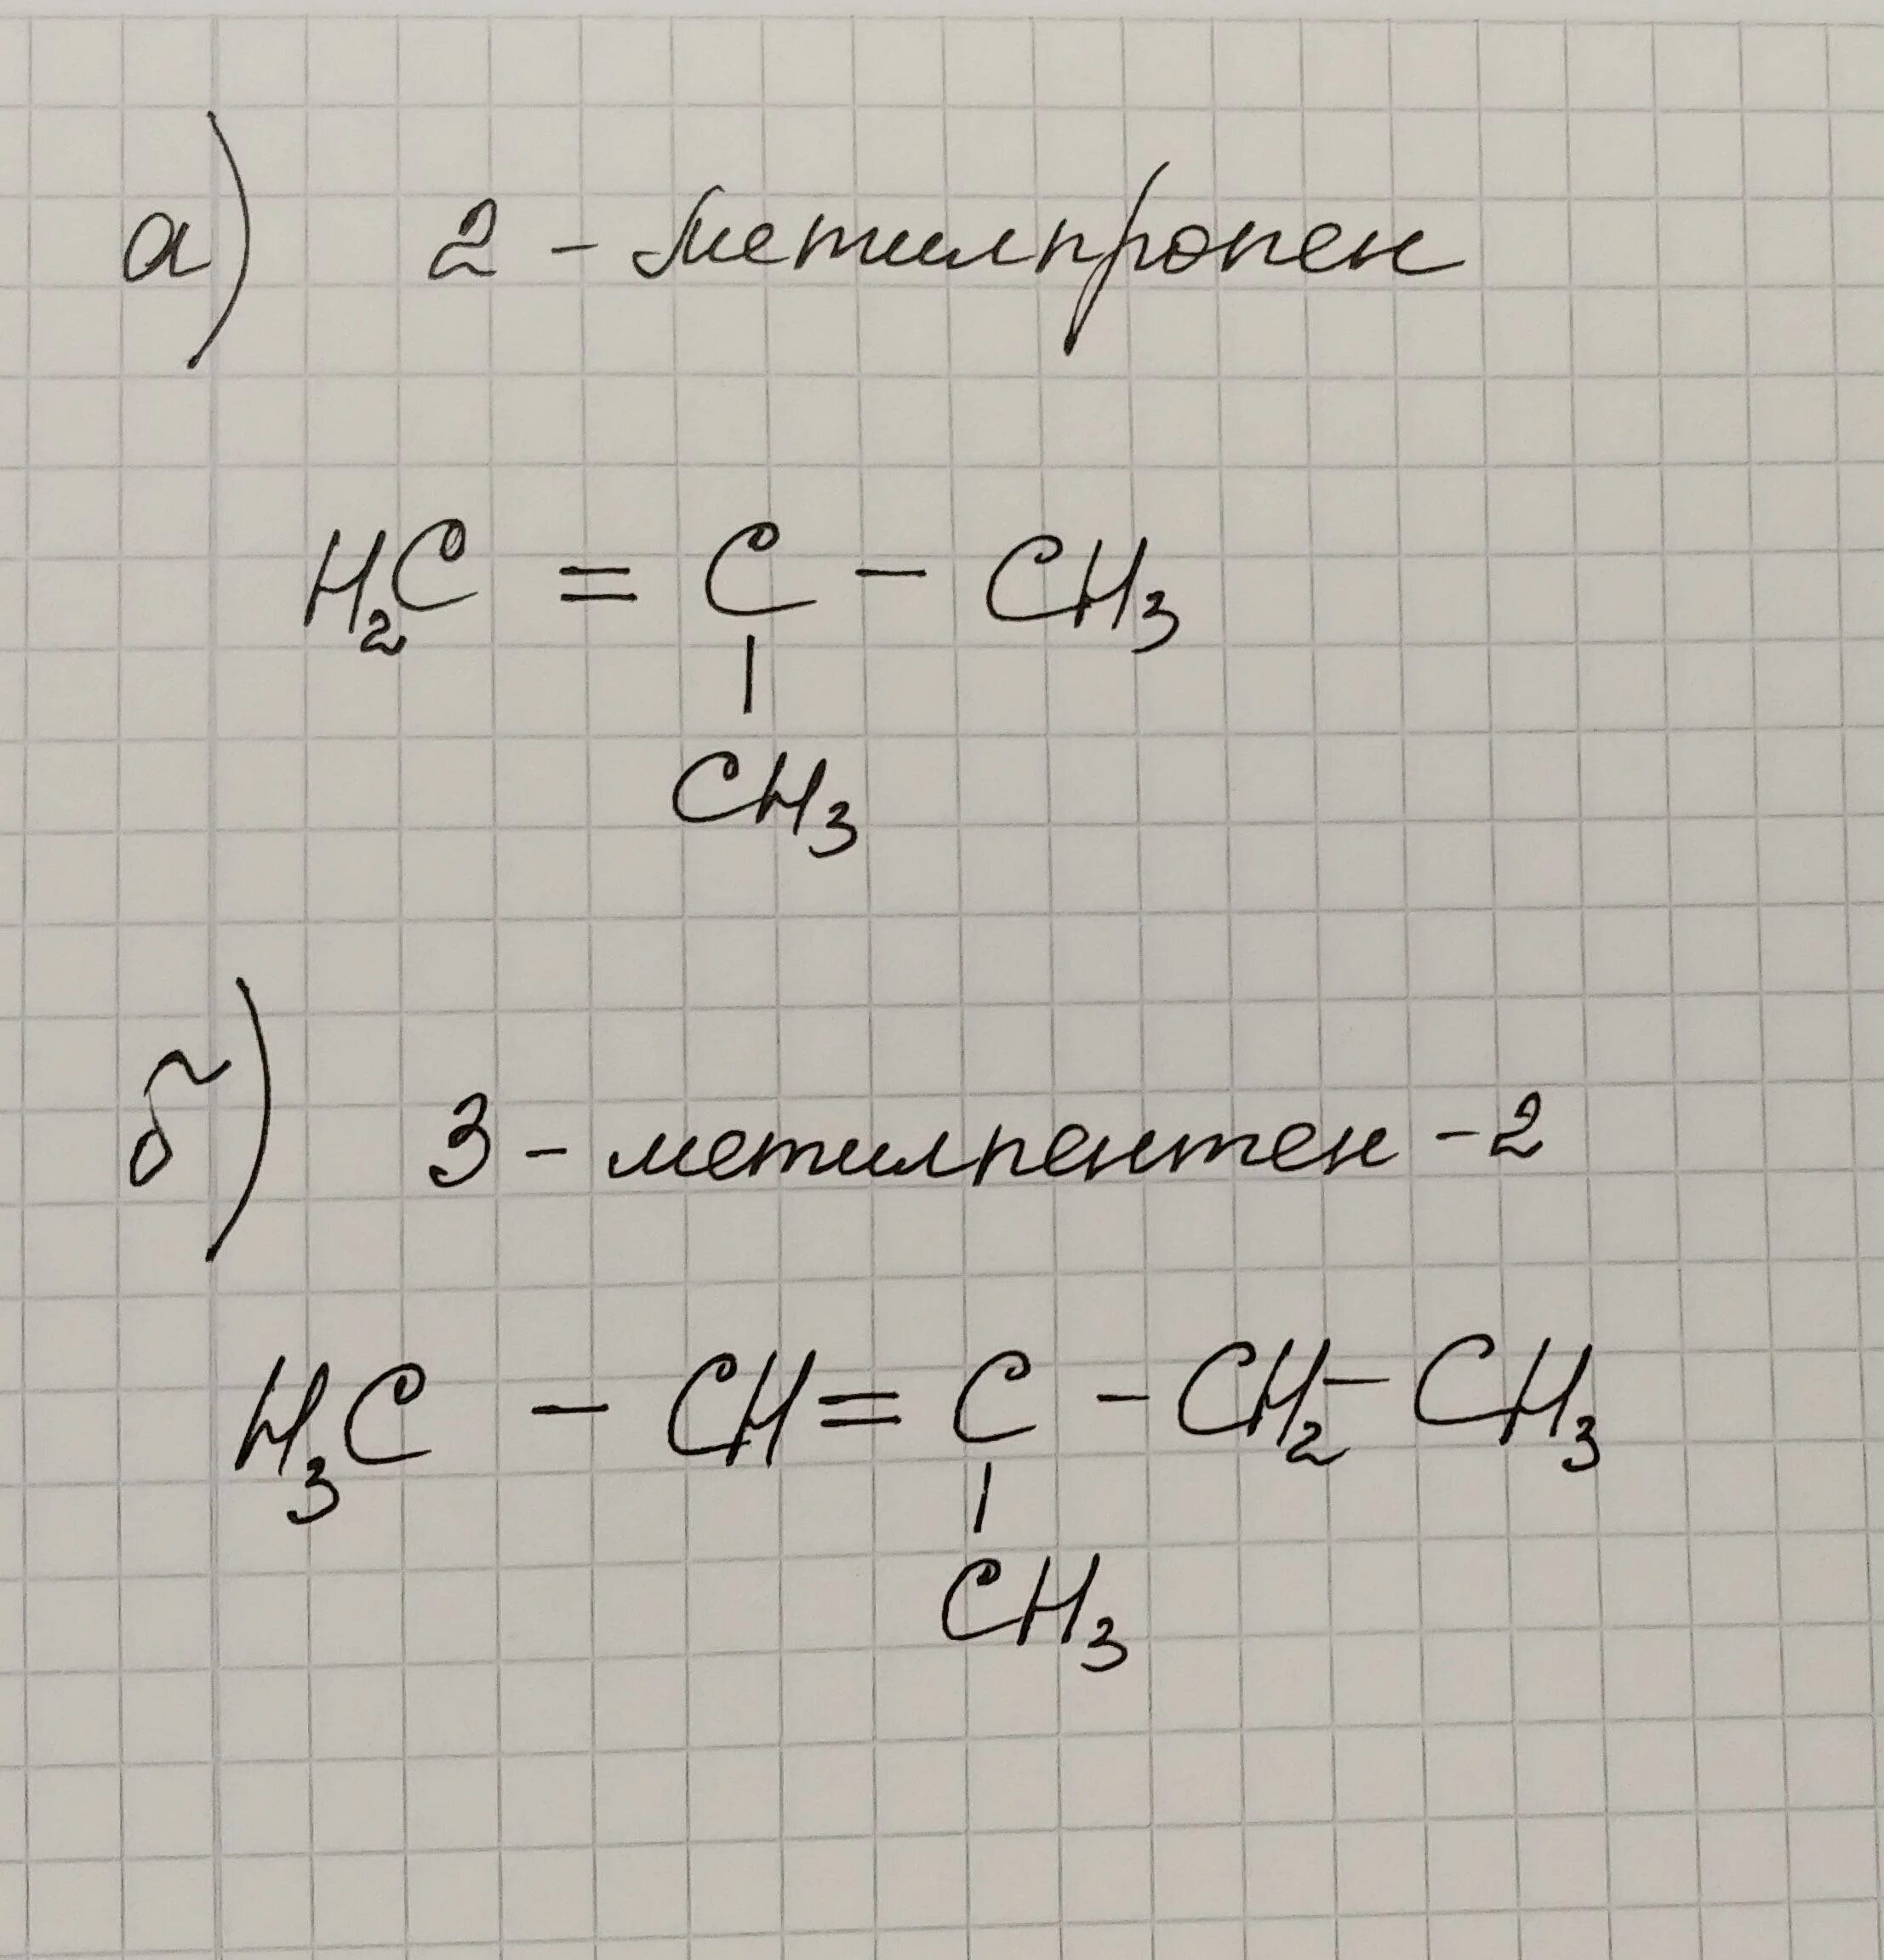 а) 2 - метилпропен
H₂C = C - CH₃
|
CH₃
б) 3 - метилпентен - 2
H₃C - CH = C - CH₂ - CH₃
|
CH₃